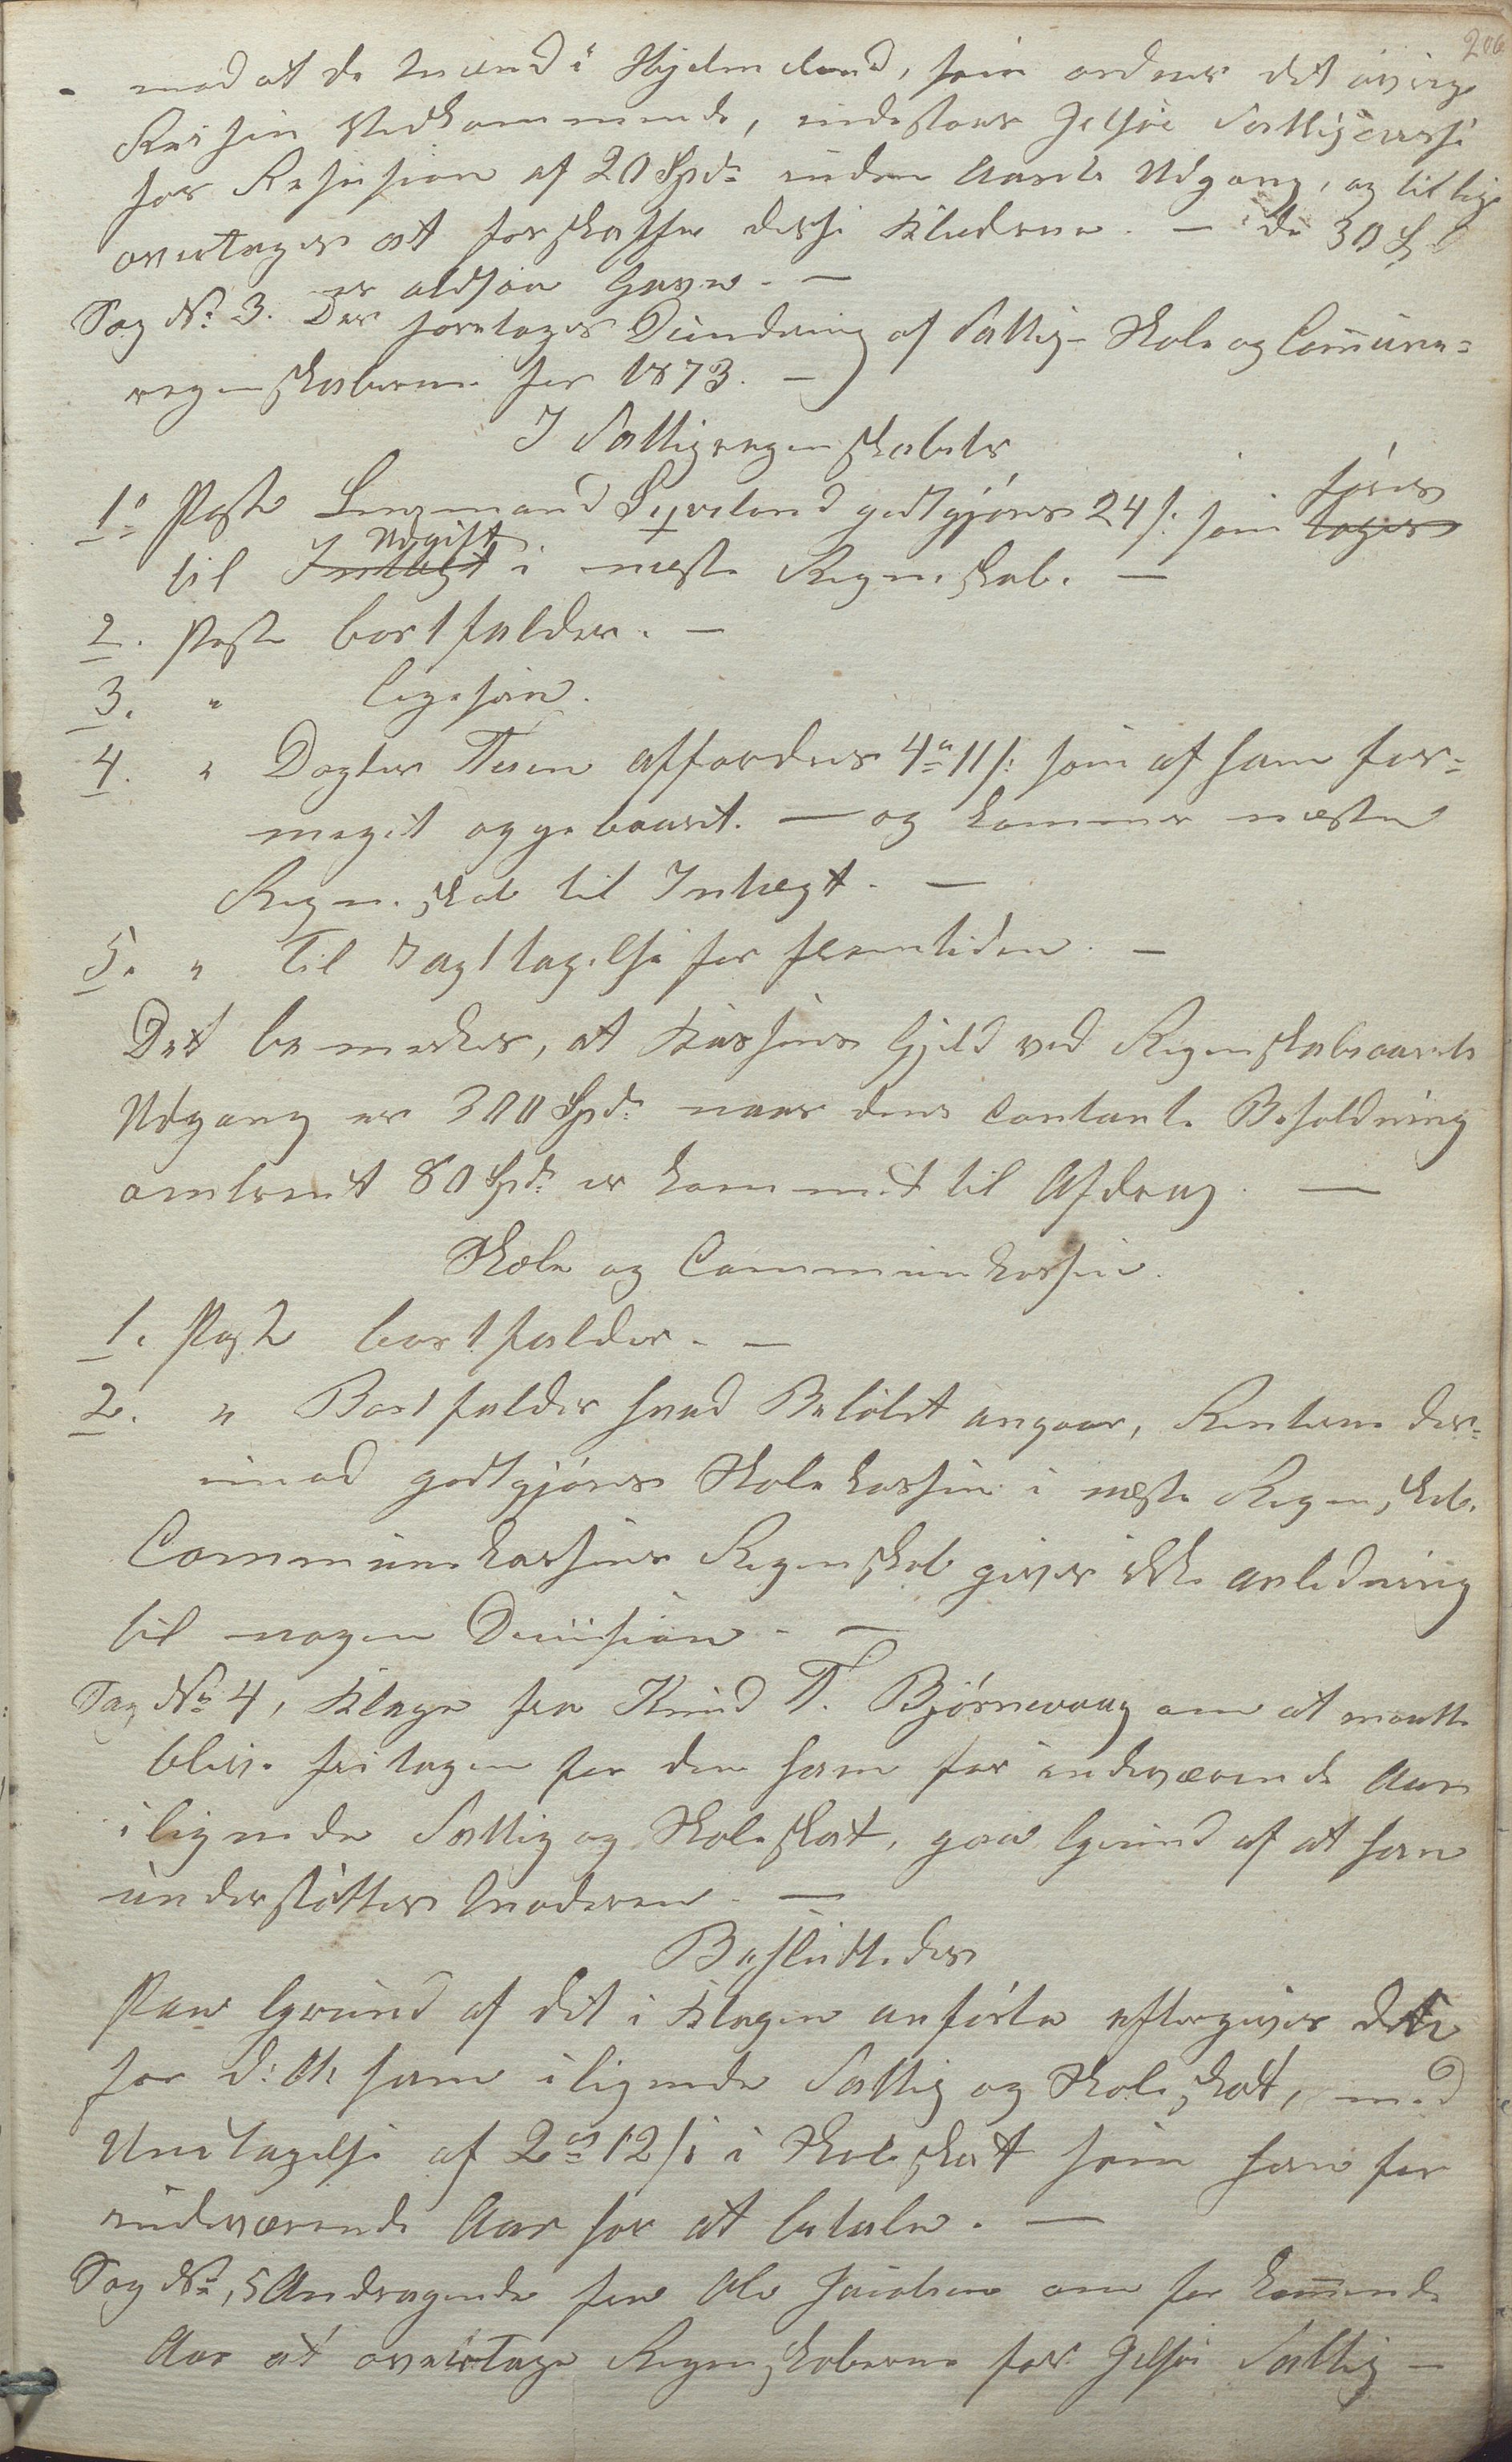 206
mod at de Mænd i Hjelmeland, som ordner det øvrige
Reisen Vedkommende, indestaar Jelsøe Fattigcasse
for Refusion af 20 Spd. inden Aarets Udgang, og tillige
overtager at forskaffe disse Klæderne. — de 30 Spd
er altsaa Gave. —
Sag No. 3. Der foretages Decidering af Fattig- Skole og Commune-
regnskaberne for 1873. —
I Fattigregnskabets
1ste Post Lensmand godtgjøres 24 s. som føres tages
til Udgift Indtægt i næste Regnskab. —
2. Post bortfalder. —
3. " ligesaa.
4. " Dogter affordres 4 11 s. som af ham for-
meget oppebaaret. — og kommer næste
Regnskab til Indtægt. —
5. " Til Iagttagelse for fremtiden. —
Det bemærkes, at Kassens Gjeld ved Regnskabsaarets
Udgang er 300 Spd. naar dens contante Beholdning
omtrent 80 Spd. er kommet til Afdrag. —
Skole og Communekassen.
1. Post bortfalder. —
2. " Bortfalder hvad Beløbet angaar, Renterne der-
imod godtgjøres Skolekassen i næste Regnskab.
Communekassens Regnskab giver ikke anledning
til nogen Decision. —
Sag No. 4, Klage fra Knud T. Bjørnevaag om at maatte
blive fritagen for den ham for indeværende Aar
ilignede Fattig og Skoleskat, paa Grund af at han
understøtter Moderen. —
Besluttedes
Paa Grund af det i Klagen anførte eftergives dette
for d. A. ham ilignede Fattig og Skoleskat, med
Undtagelse af 2 12 s. i Skoleskat som han for
indeværende Aar har at betale. —
Sag No. 5 Andragende fra Ole Jacobsen om for kommende
Aar at overtage Regnskaberne for Jelsøe Fattig —